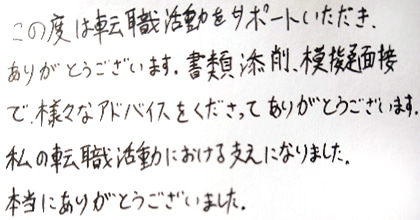 この度は転職活動をサポートいただき、
ありがとうございます。書類添削、模擬面接
で、様々なアドバイスをくださってありがとうございます。
私の転職活動における支えになりました。
本当にありがとうございました。